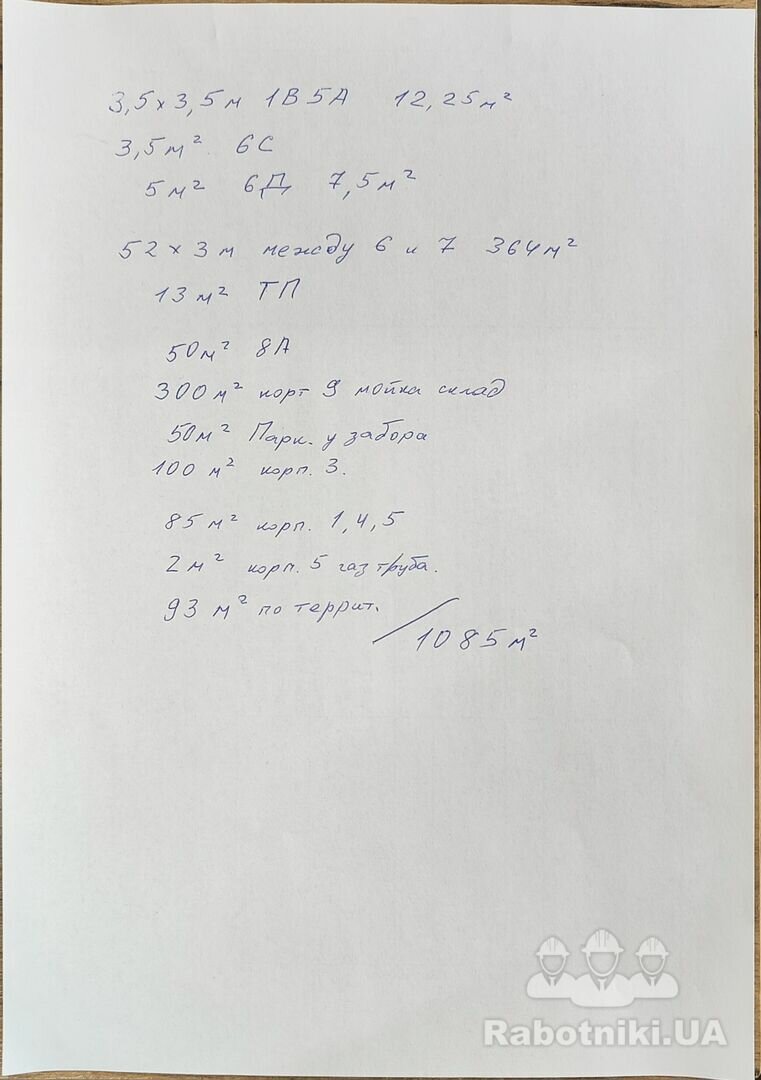 3,5 х 3,5 м 1В 5А 12,25 м²
3,5 м². 6С
5 м² 6Д 7,5 м²
52 х 3 м между 6 и 7 364 м²
13 м² ТП
50 м² 8А
300 м² корт 9 мойка склад
50 м² Парк. у забора
100 м² корп. 3.
85 м² корп. 1, 4, 5
2 м² корп. 5 газ труба.
93 м² по террит.
1085 м²
Rabotniki.UA